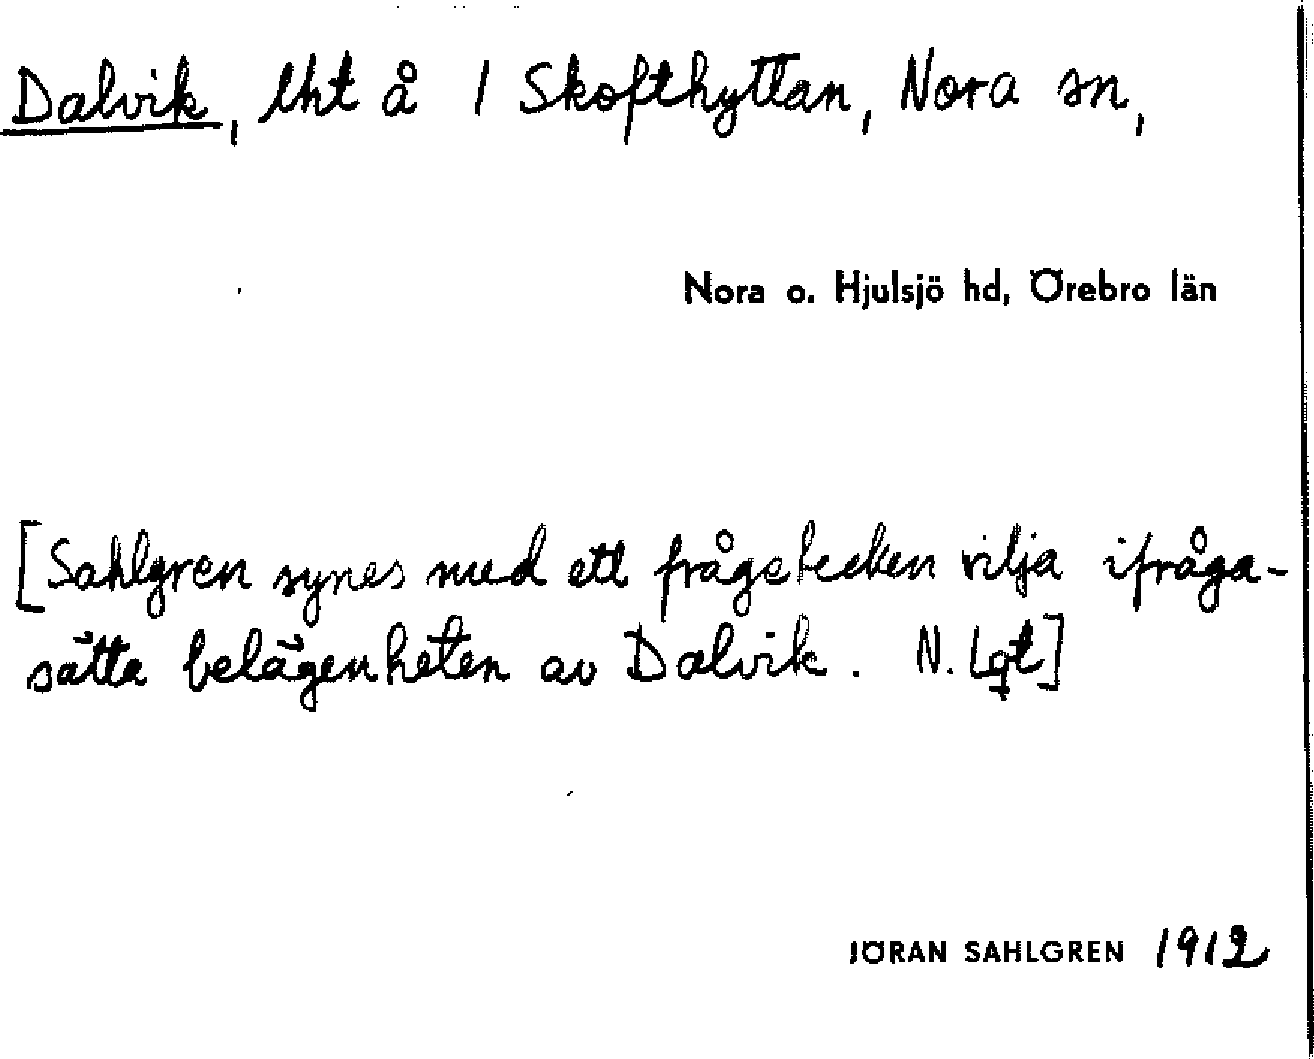 Dalvik, lht å 1 Skofthyttan, Nora sn,
Nora o. Hjulsjö hd, Örebro län
[Sahlgren synes med ett frågetecken vilja ifråga-
sätta belägenheten av Dalvik. N. Lgt]
JÖRAN SAHLGREN 1912